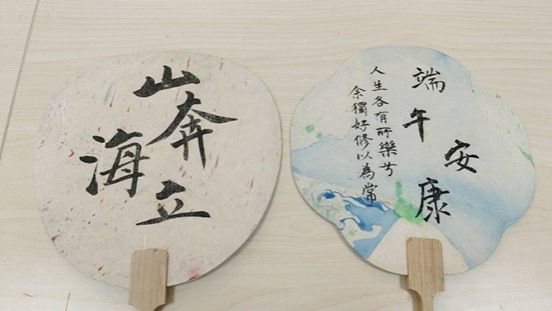 山奔海立
端午安康
人生各有所樂兮
余獨好修以為常